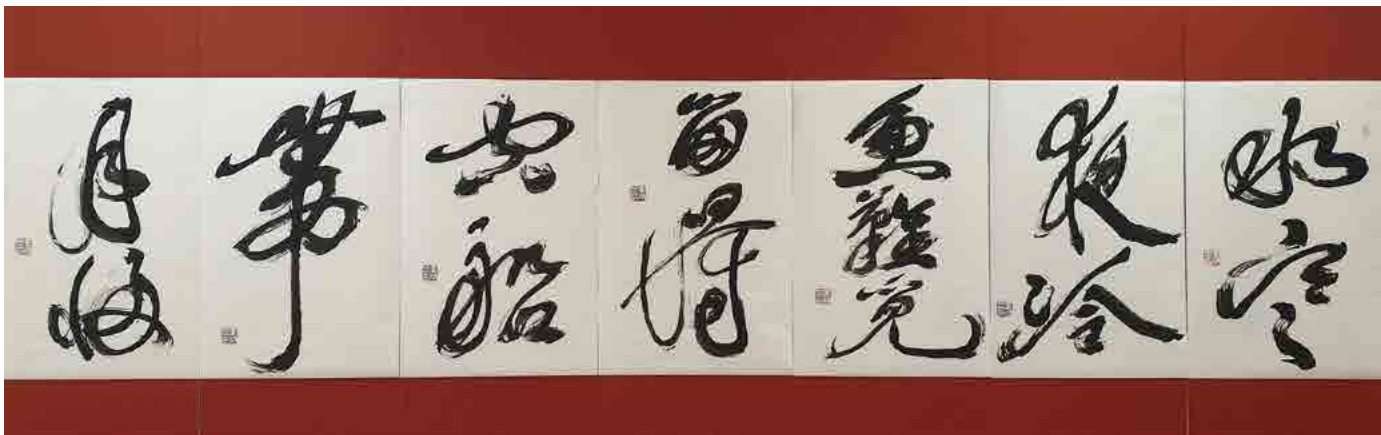 水寒
夜冷
魚難覓
留得
空船
帶
月歸